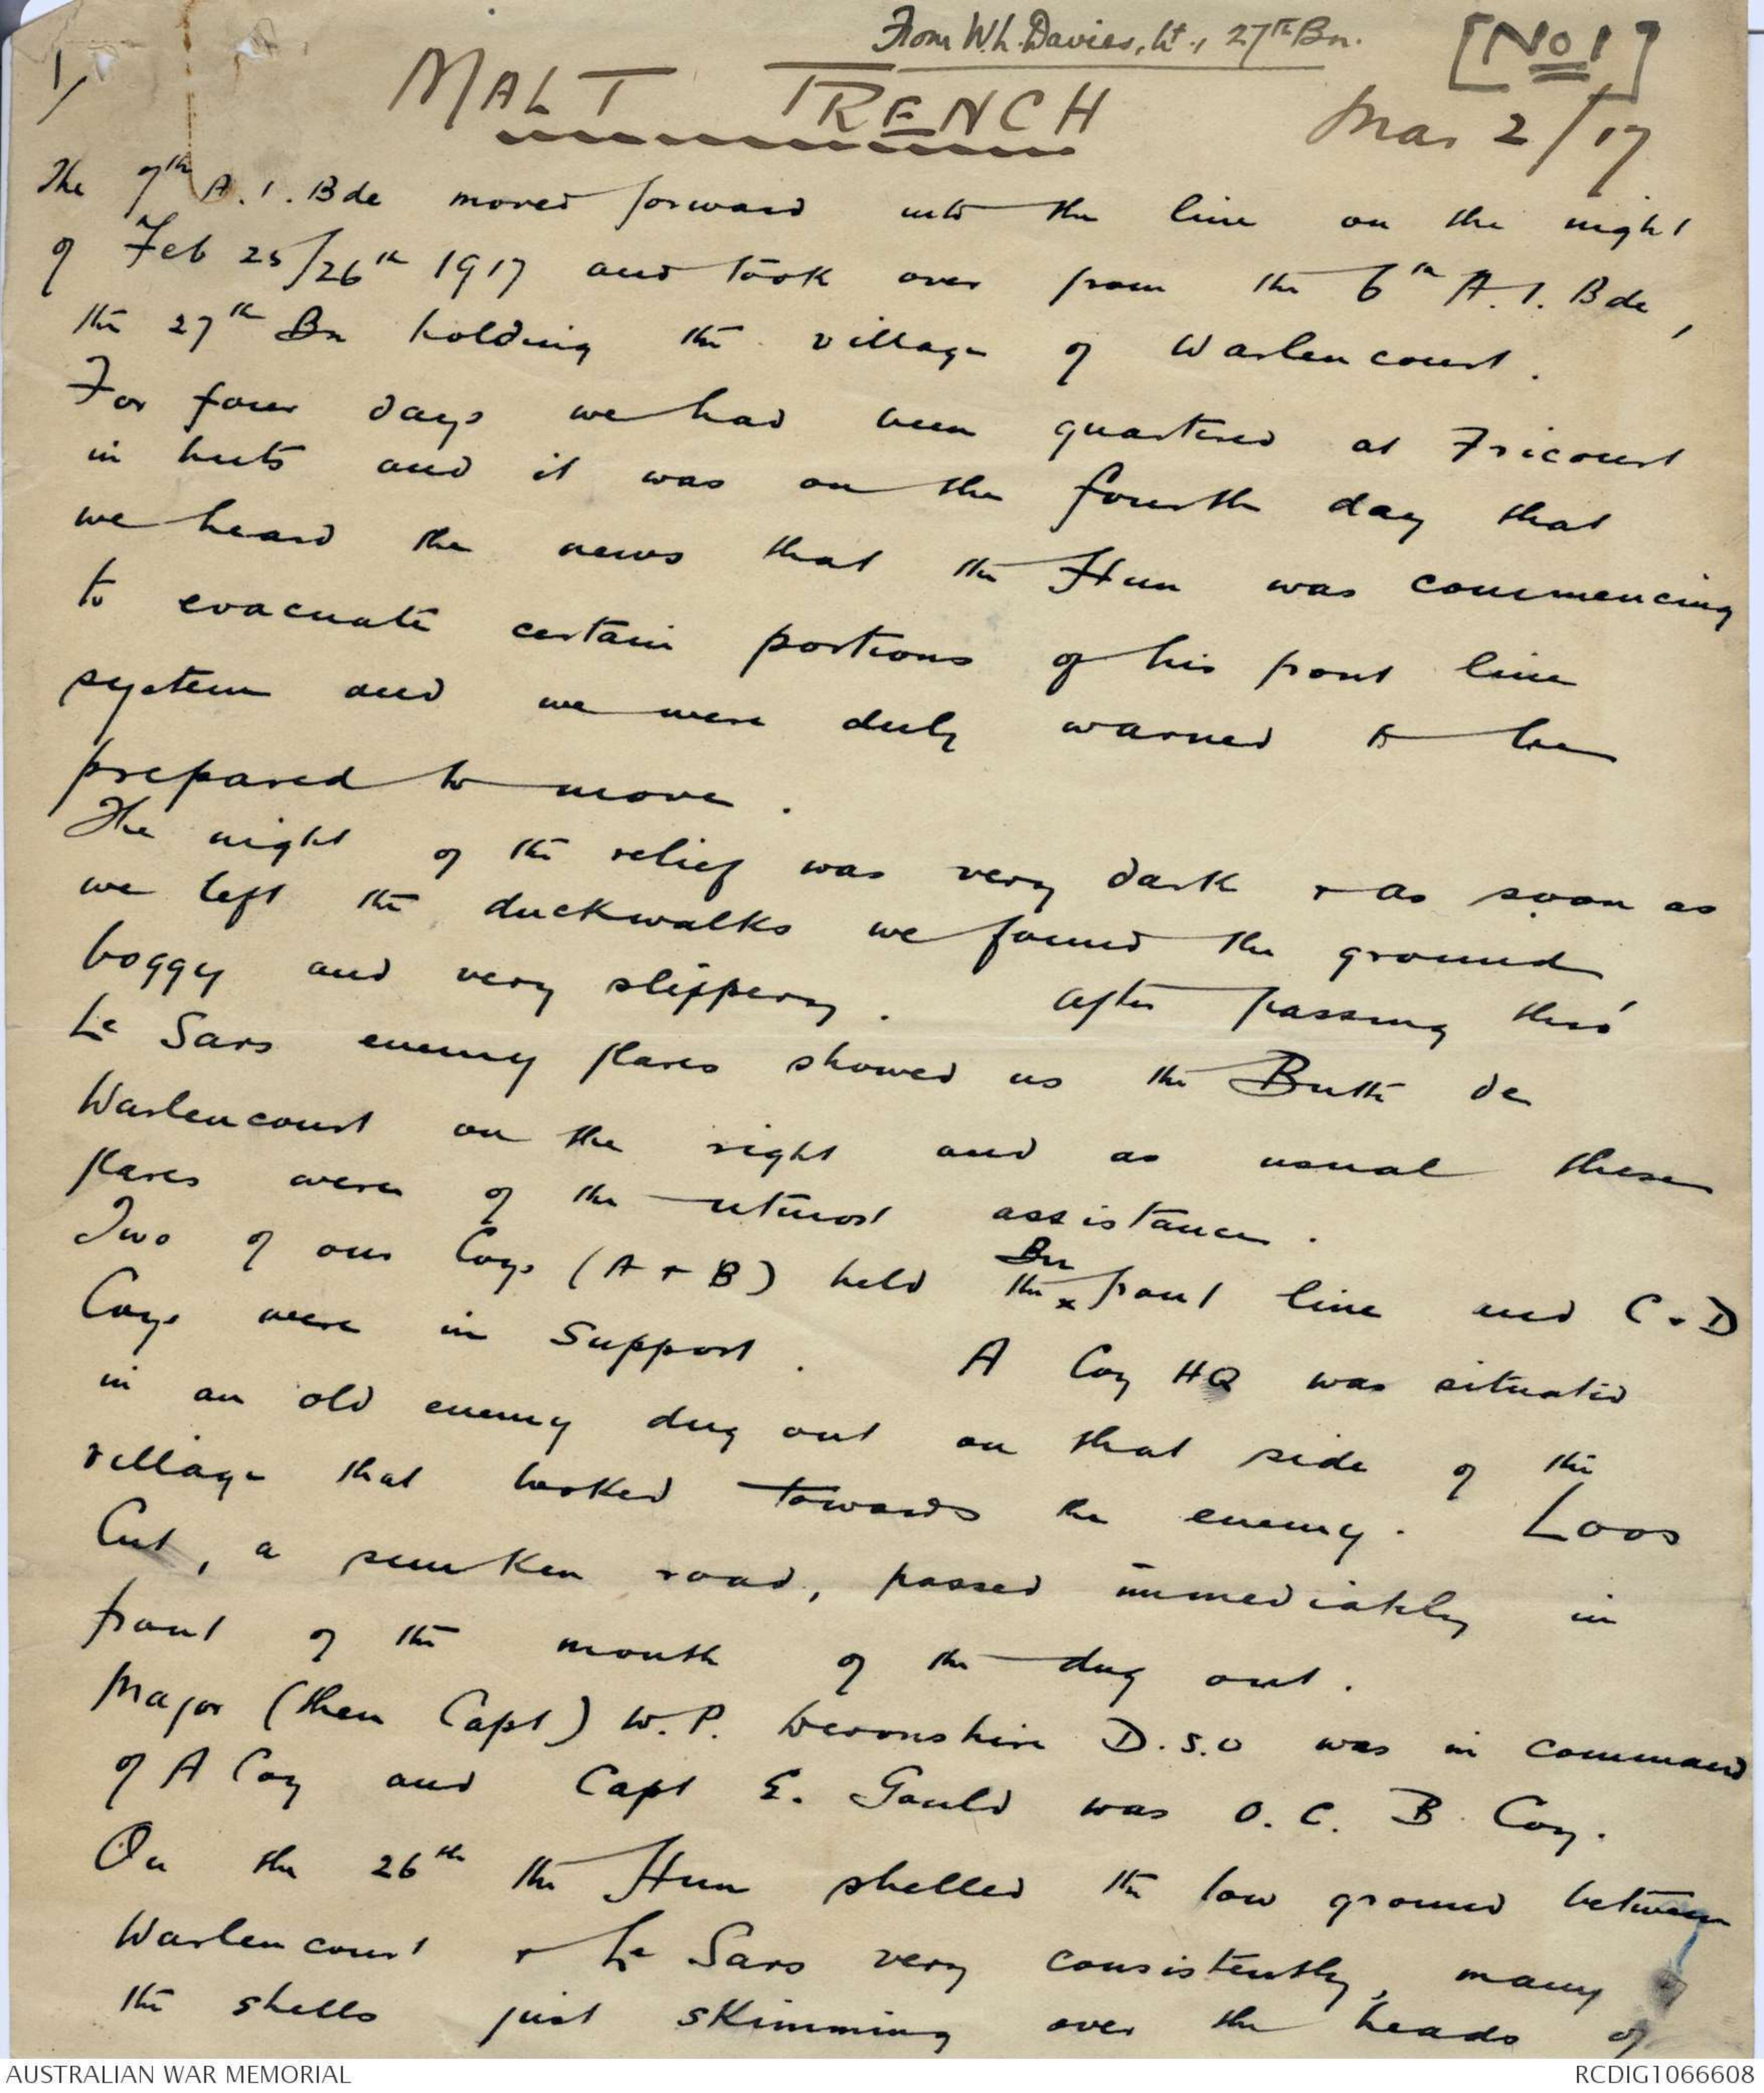 1/
From W.L. Davies, Lt., 27th Bn.
[No 1]
MALT TRENCH
Mar 2/17
The 7th A.I. Bde moved forward into the line on the night
of Feb 25/26th 1917 and took over from the 6th A.I. Bde,
the 27th Bn holding the village of Warlencourt.
For four days we had been quartered at Fricourt
in huts and it was on the fourth day that
we heard the news that the Hun was commencing
to evacuate certain portions of his front line
system and we were duly warned to be
prepared to move.
The night of the relief was very dark + as soon as
we left the duckwalks we found the ground
boggy and very slippery. After passing thro'
Le Sars enemy flares showed us the Butte de
Warlencourt on the right and as usual these
flares were of the utmost assistance.
Two of our Coys (A + B) held the x Bn front line and C + D
Coys were in support. A Coy HQ was situated
in an old enemy dug out on that side of the
village that looked towards the enemy. Loos
Cut, a sunken road, passed immediately in
front of the mouth of the dug out.
Major (then Capt) W.P. Devonshire D.S.O was in command
of A Coy and Capt E. Gould was O.C. B Coy.
On the 26th the Hun shelled the low ground between
Warlencourt + Le Sars very consistently, many
the shells just skimming over the heads of
AUSTRALIAN WAR MEMORIAL
RCDIG1066608